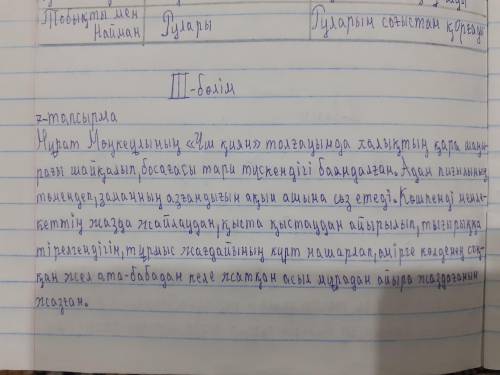 Тобықты мен Найман Рулары Руларын соғыстан қорғауі
III-бөлім
7-тапсырма
Мұрат Мөңкеұлының «Үш қиян» толғауында халықтың қара шаңы-
рағы шайқалып, босағасы тари түскендігі баяндалған. Адам пиғылының
төмендеп, заманның азғандығын ақын ашына сөз етеді. Көшпенді мемле-
кеттің жазда жайлаудан, қыста қыстаудан айырылып, тығырыққа
тірелгендігін, тұрмыс жағдайының күрт нашарлап, өмірге көлденең соқ-
қан жел ата-бабадан келе жатқан асыл мұрадан айыра жаздағанын
жазған.